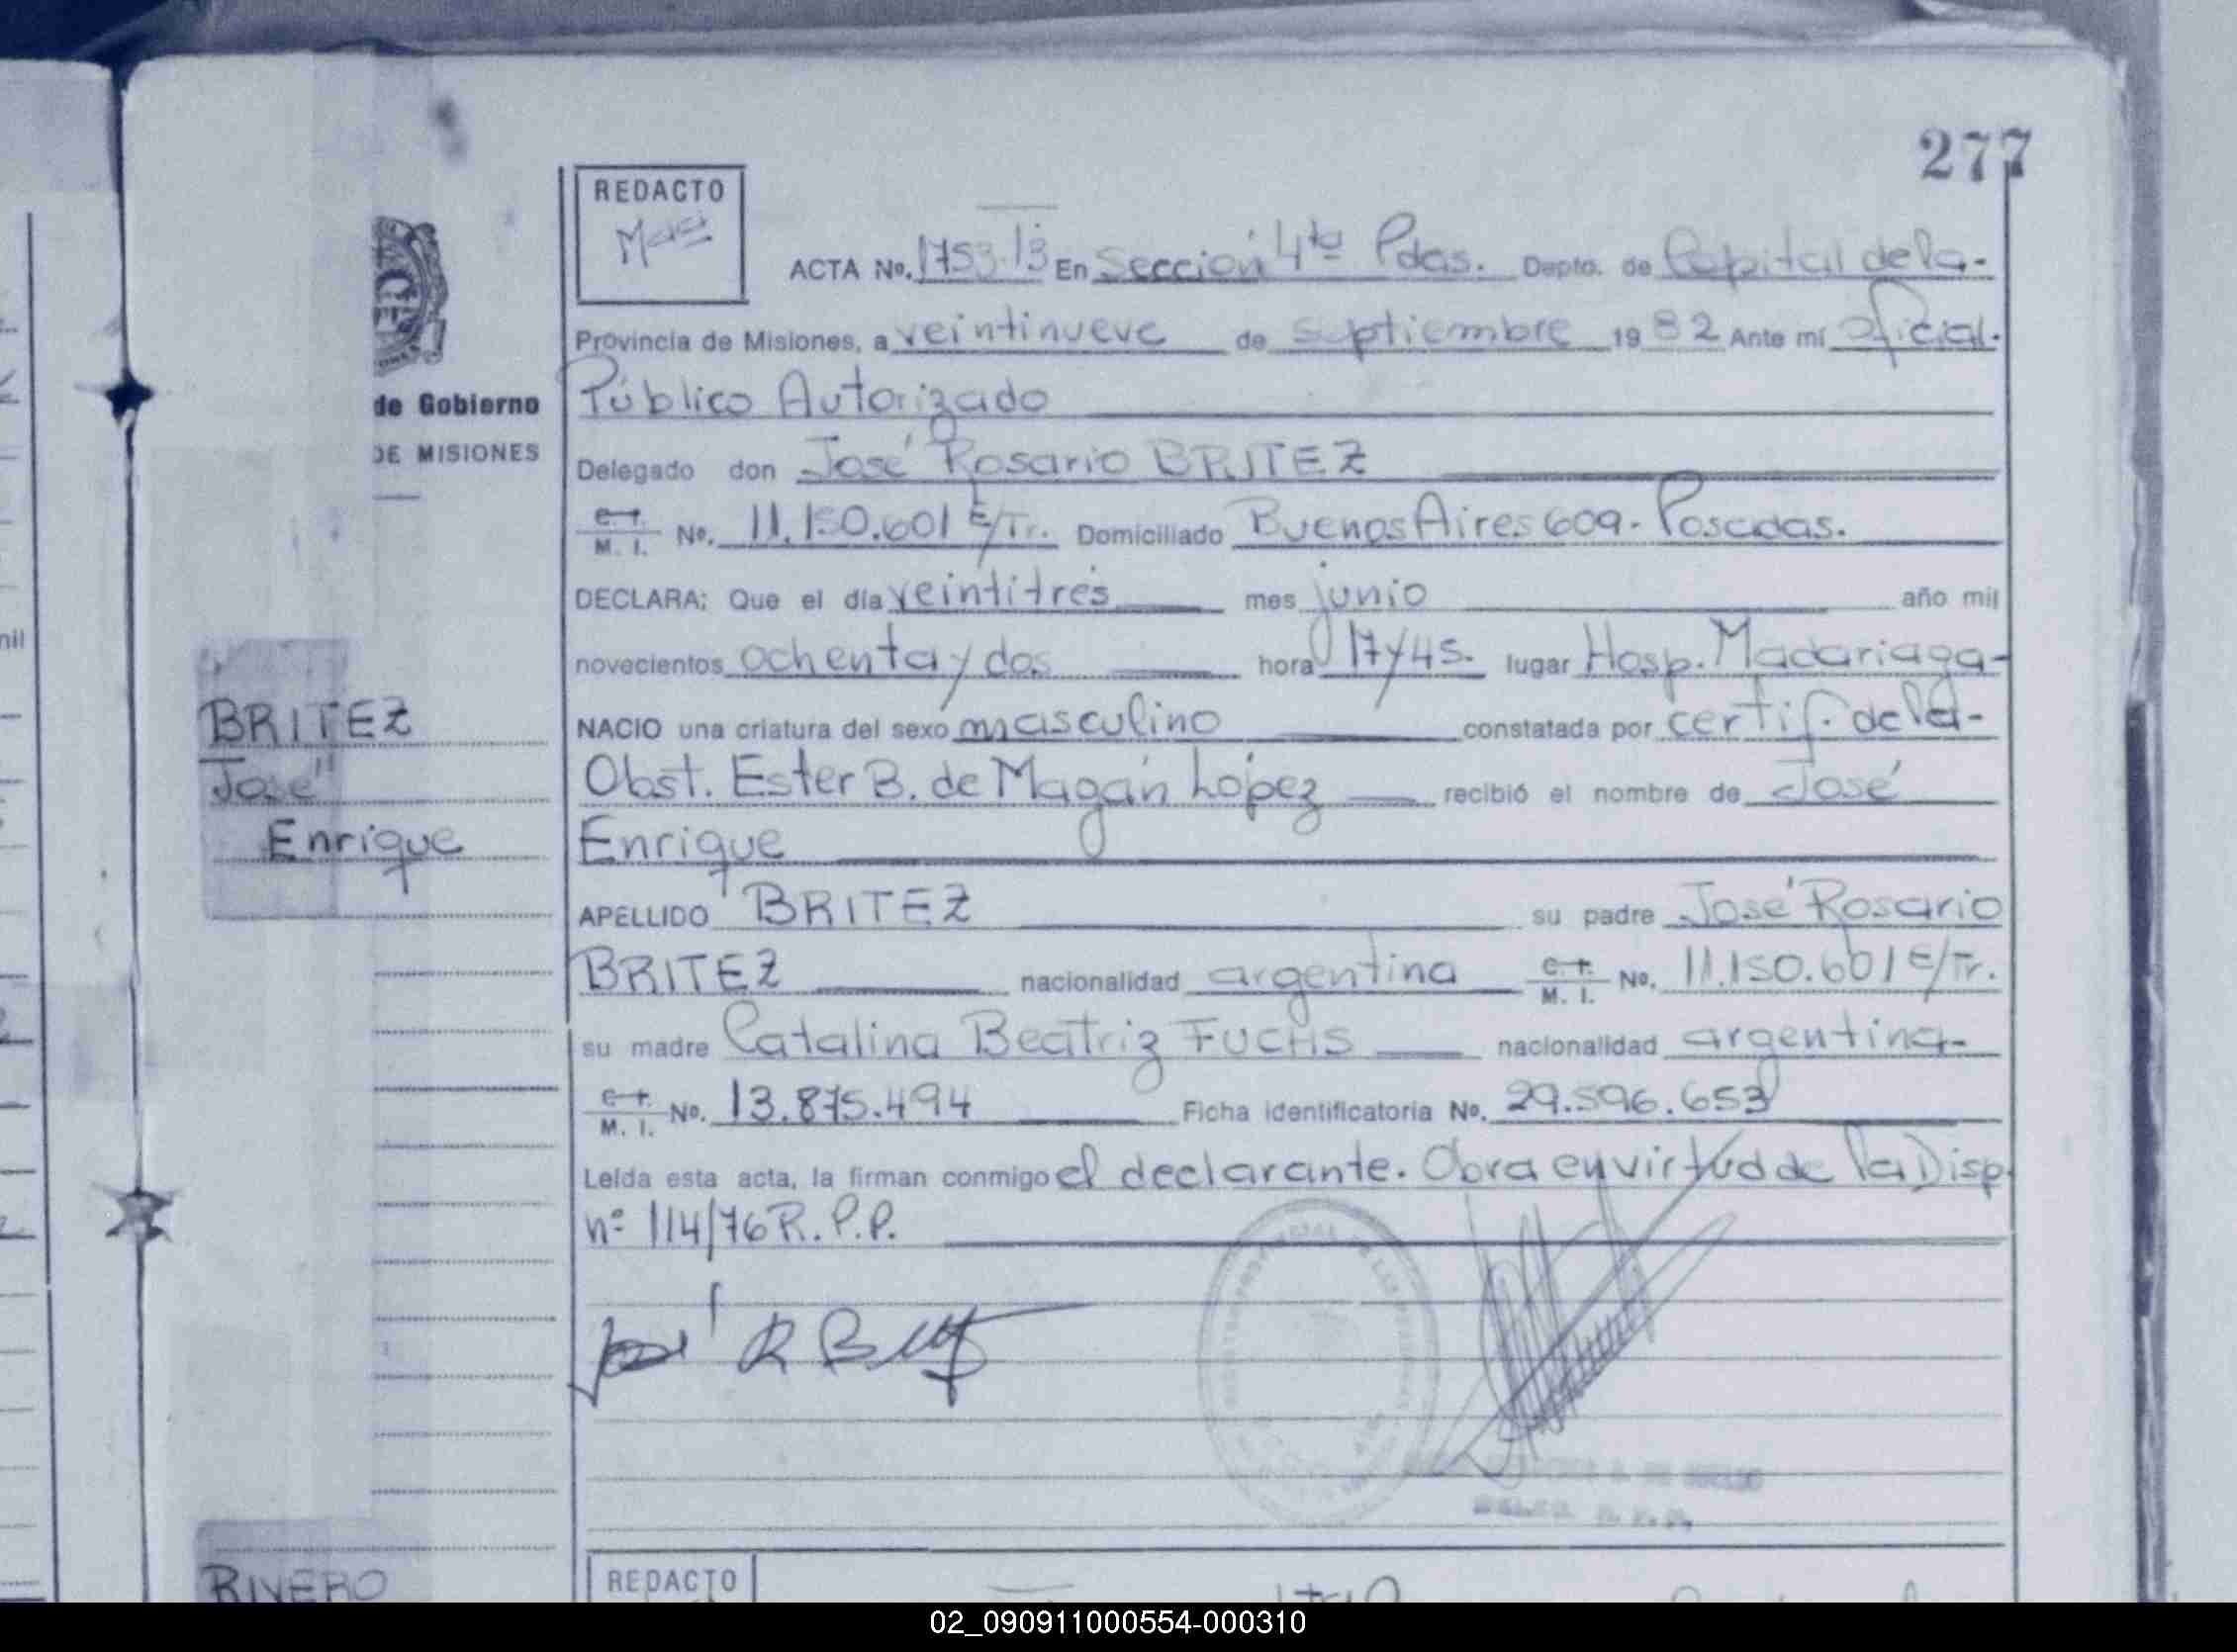 277
REDACTO
ACTA No. 1753.13 En Sección 4ta Pdas. Depto. de Capital de la-
Provincia de Misiones, a veintinueve de septiembre 1982 Ante mí Oficial.
Público Autorizado
de Gobierno
DE MISIONES
Delegado don José Rosario BRITEZ
C. I. M. I. No. 11.150.601 E/Tr. Domiciliado Buenos Aires 609- Posadas.
DECLARA: Que el día veintitrés mes junio año mil
novecientos ochenta y dos hora 17 y 45. lugar Hosp. Madariaga-
NACIO una criatura del sexo masculino constatada por certif. de la-
Obst. Ester B. de Magán López recibió el nombre de José
Enrique
BRITEZ
José
Enrique
APELLIDO BRITEZ su padre José Rosario
BRITEZ nacionalidad argentina C. I. M. I. No. 11.150.601 E/Tr.
su madre Catalina Beatriz FUCHS nacionalidad argentina-
C. I. M. I. No. 13.875.494 Ficha identificatoria No. 29.596.653
Leída esta acta, la firman conmigo el declarante. Obra en virtud de la Disp.
nº 114/76 R.P.P.
José R B
RIVERO
REDACTO
02_090911000554-000310